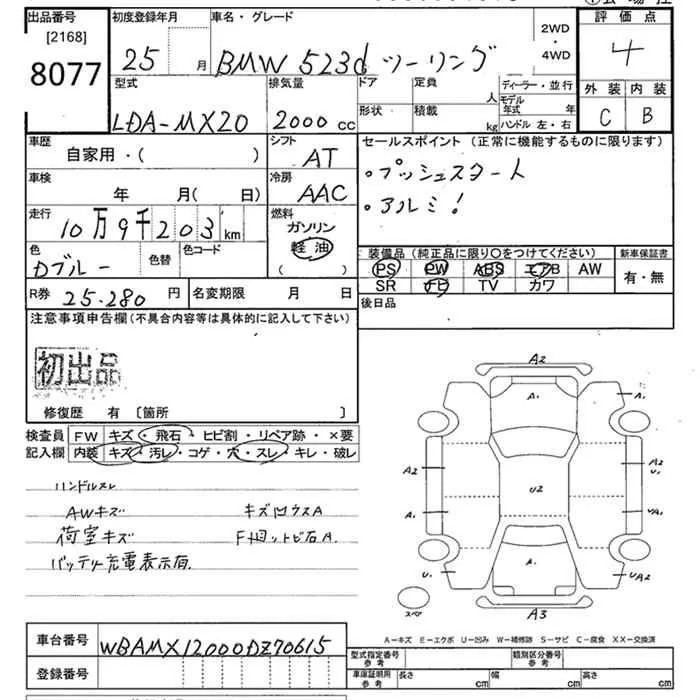 出品番号 初度登録年月 車名・グレード 2WD・4WD 評価点
[2168]
8077
25 月 BMW 523d ツーリング 4
型式 排気量 ドア 定員 人 ディーラー・並行 外装 内装
モデル年式 年
LDA-MX20 2000 CC 形状 積載 kg ハンドル 左・右 C B
車歴 シフト セールスポイント (正常に機能するものに限ります)
自家用・( ) AT
・プッシュスタート
車検 冷房
年 月( 日) AAC
・アルミ!
走行 燃料
10万9千203km ガソリン
軽油
( )
色 色替 色コード
Dブルー
装備品(純正品に限り○をつけてください) 新車保証書
PS PW ABS エアB AW 有・無
SR ナビ TV カワ
R券 25.280 円 名変期限 月 日
後日品
注意事項申告欄(不具合内容等は具体的に記入して下さい)
初出品
修復歴 有 〔箇所 〕
検査員 FW キズ・飛石・ヒビ割・リペア跡・×要
記入欄 内装 キズ・汚レ・コゲ・穴・スレ・キレ・破レ
ハンドルスレ
AWキズ キズ凹ウスA
荷室キズ F廻ットビ石A.
バッテリー充電表示有
A2
A. A.
A2 U2 A2
U.
A. UA.
U. A. UA2
スペア A3
A-キズ E-エクボ U-凹み W-補修跡 S-サビ C-腐食 XX-交換済
車台番号 WBAMX12000DZ70615
登録番号
型式指定番号 参考 類別区分番号 参考
車庫証明用 参考 長さ cm 幅 cm 高さ cm